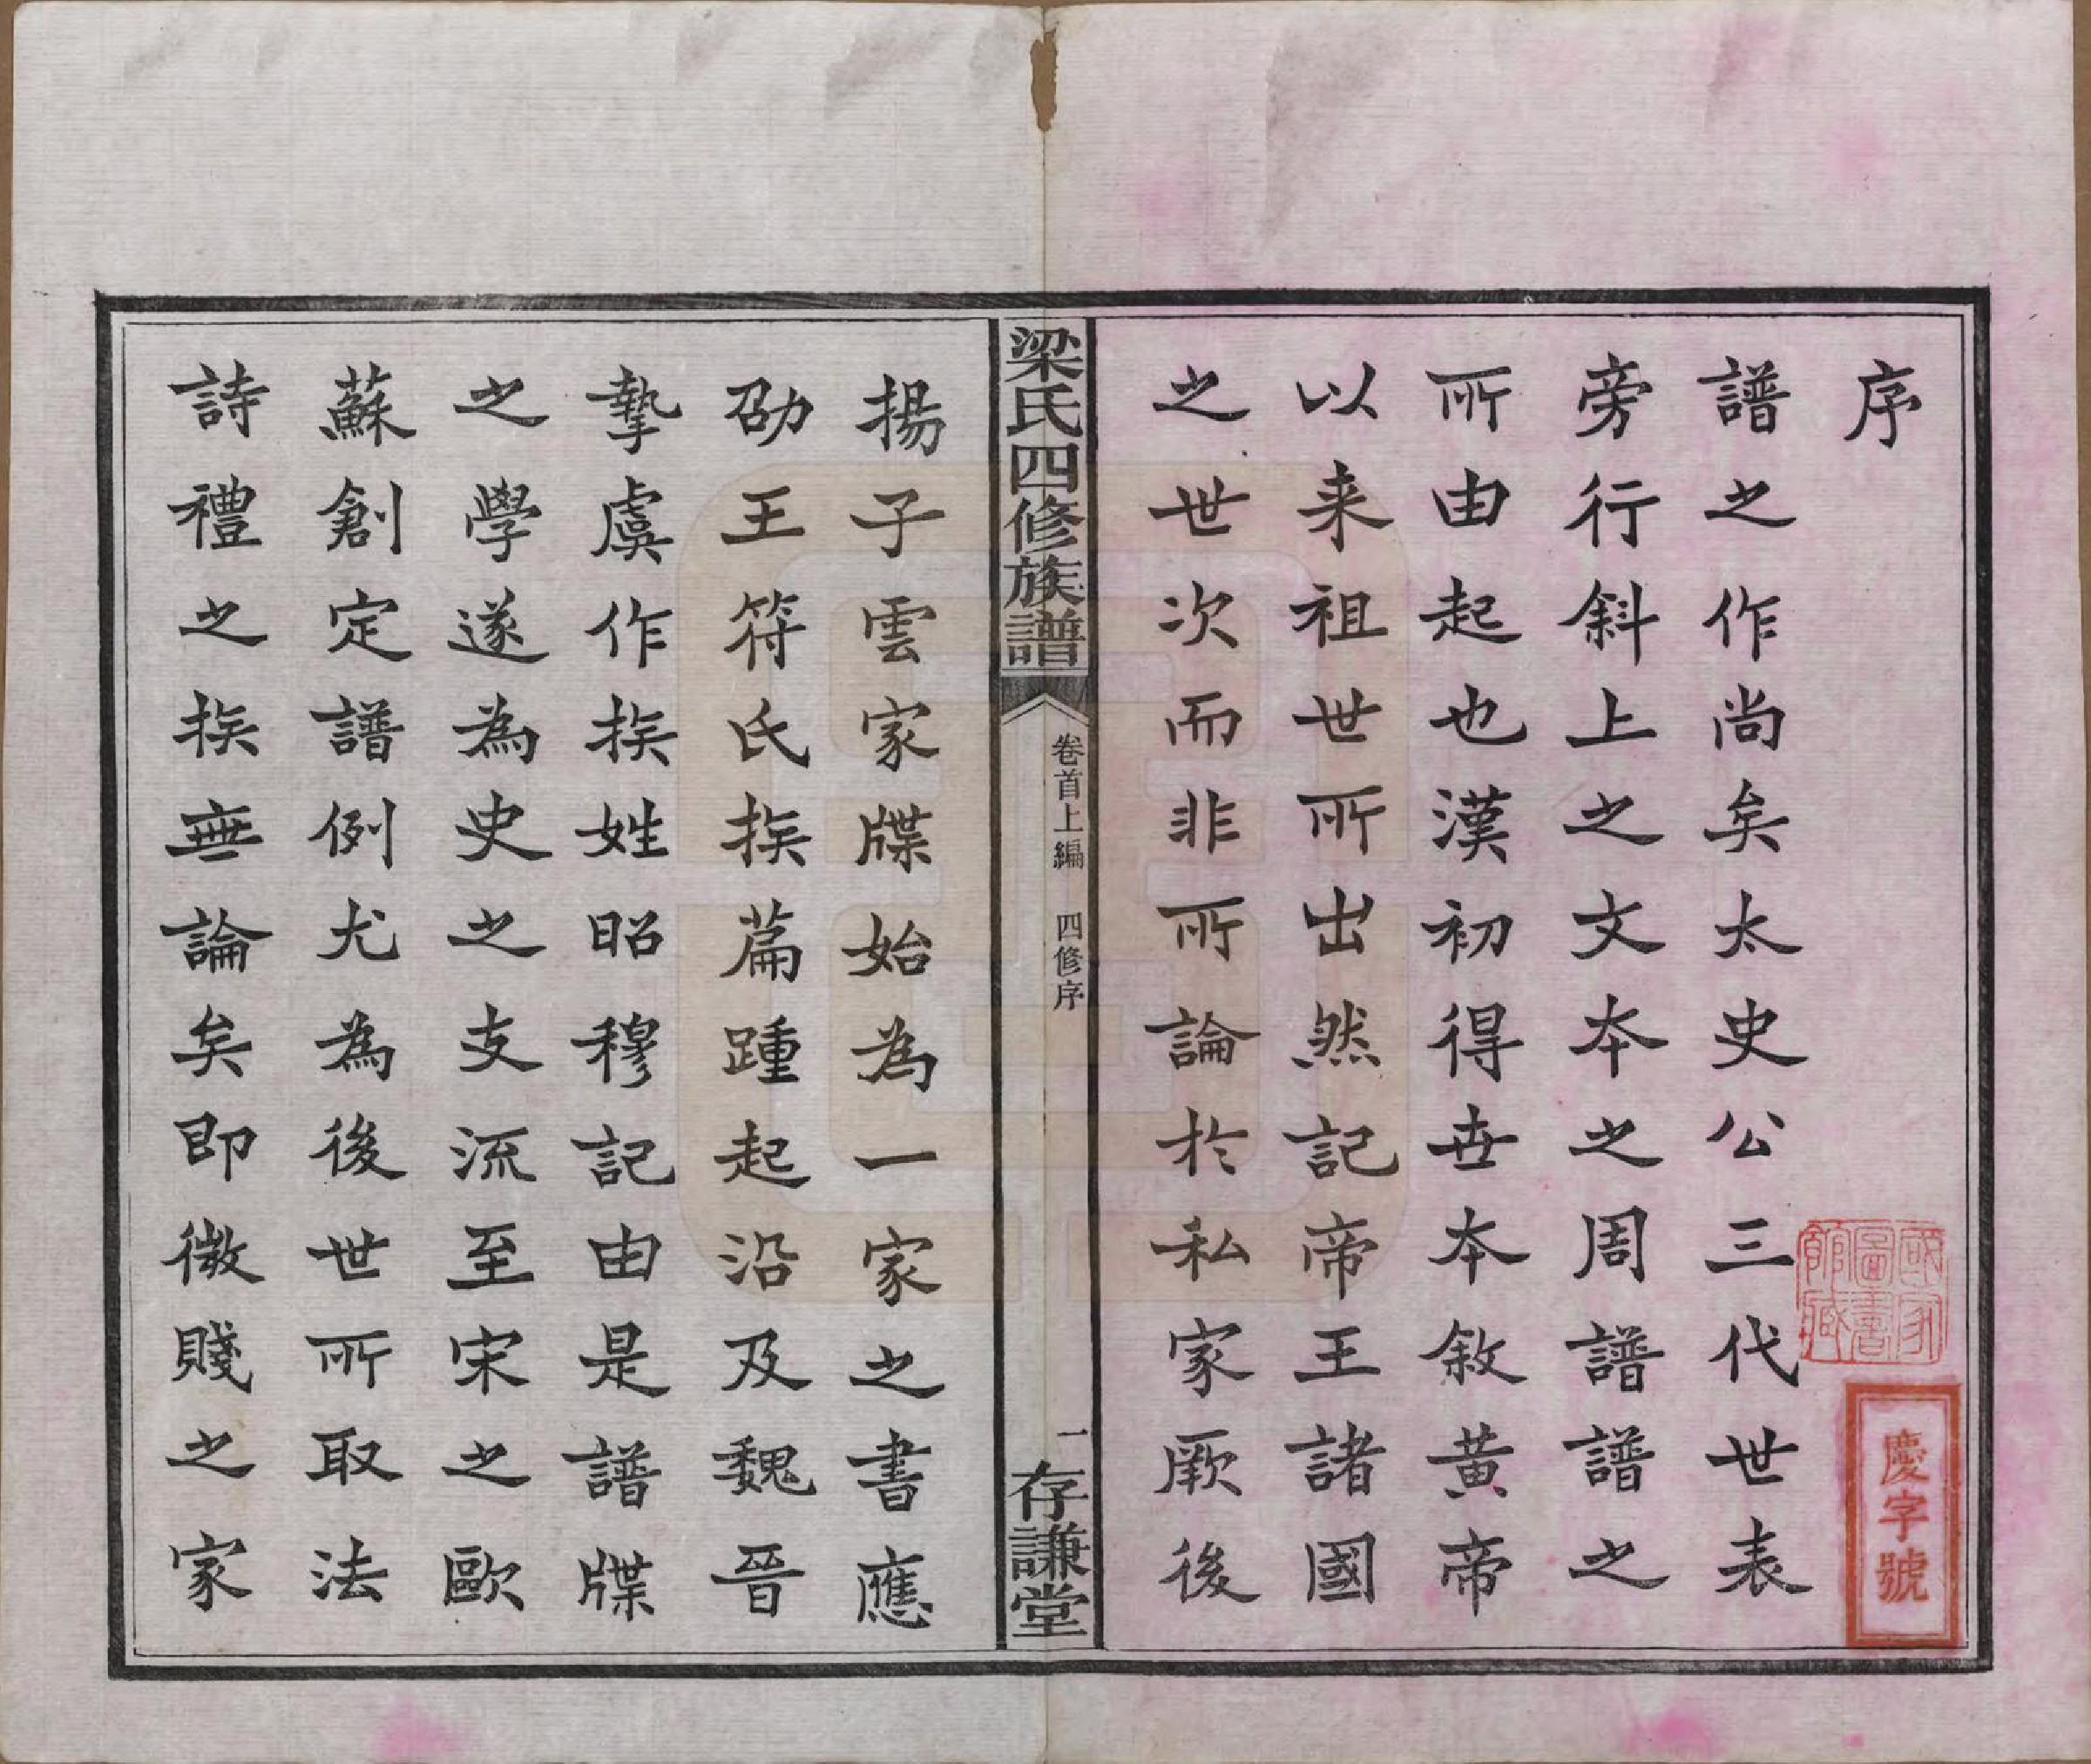 序
譜之作尚矣太史公三代世表
旁行斜上之文本之周譜譜之
所由起也漢初得世本敘黃帝
以来祖世所出然記帝王諸國
之世次而非所論於私家厥後
國家
圖書
館藏
慶字號
梁氏四修族譜
卷首上編 四修序
一
存謙堂
揚子雲家牒始為一家之書應
劭王符氏族篇踵起沿及魏晉
摯虞作族姓昭穆記由是譜牒
之學遂為史之支流至宋之歐
蘇創定譜例尤為後世所取法
詩禮之族無論矣即微賤之家